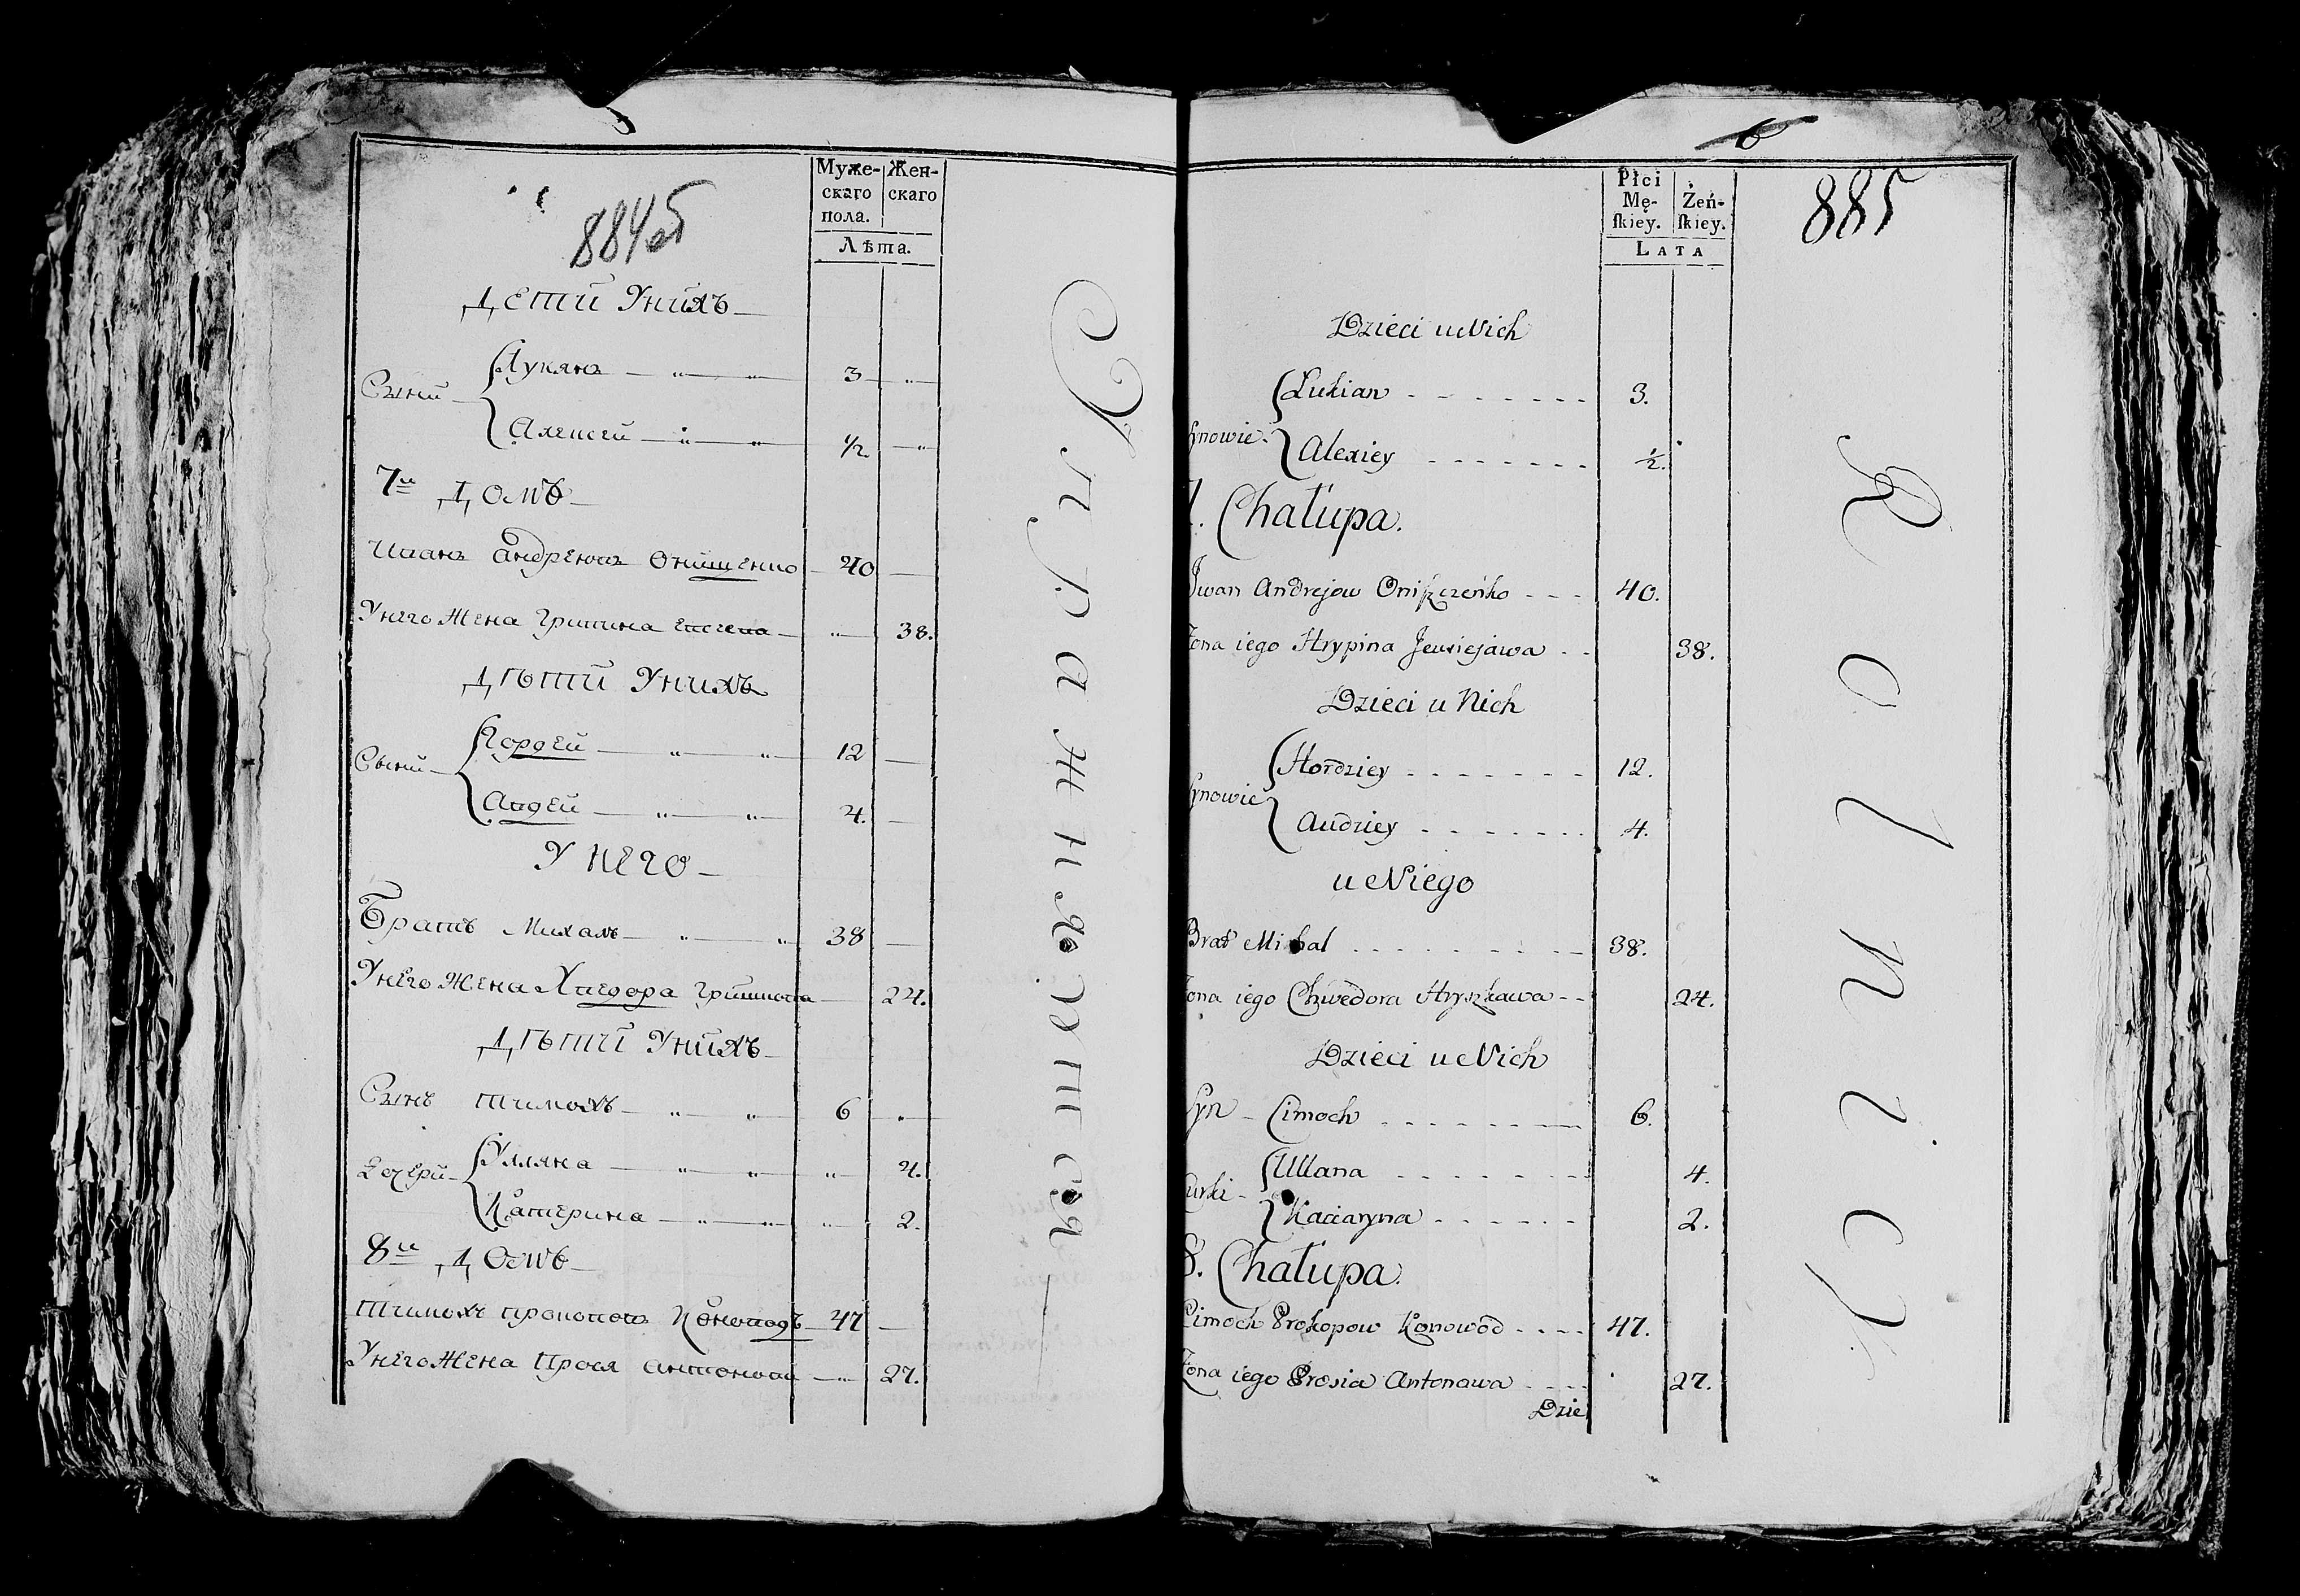 884об
Муже-
скаго
пола.
Жен-
скаго
Лѣта.
Дети Унихъ
Сыни
Лукянъ 3
Алексей ½.
7й Домъ
Иванъ Андреювъ Онищенко 40
Унего Жена Грипина Евсеева 38.
Дѣти Унихъ
Сыни
Гордей 12
Авдей 4.
У него
Братъ Михалъ 38
Унего Жена Хведора Гришкова 24.
Дѣти Унихъ
Сынъ Тимохъ 6
Дочери
Улляна 4.
Катерина 2.
8й Домъ
Тимохъ Прокоповъ Коноводъ 47
Унего Жена Прося Антонова 27.
Упражняются
6
885
Płci
Mę-
ſkiey.
Żeń-
ſkiey.
LATA
Dzieci u Nich
Synowie
Łukian 3.
Alexiey ½.
7. Chałupa.
Jwan Andrejow Oniſzczeńko 40.
Żona iego Hrypina Jewsiejawa 38.
Dzieci u Nich
Synowie
Hordziey 12.
Audziey 4.
u Niego
Brat Michał 38.
Żona iego Chwedora Hryszkawa 24.
Dzieci u Nich
Syn Cimoch 6.
Curki
Ullana 4.
Kaciaryna 2.
8. Chałupa.
Cimoch Prokopow Konowod 47.
Żona iego Prosia Antonawa 27.
Dzie
Rolnicy